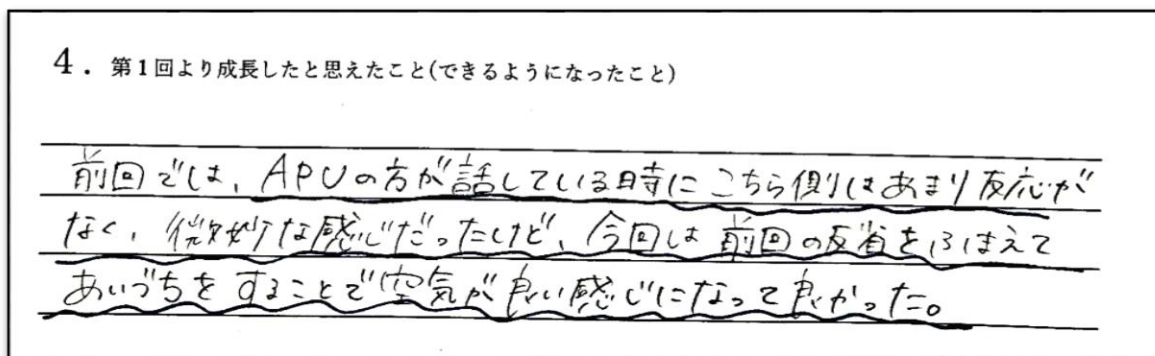 4．第1回より成長したと思えたこと(できるようになったこと)
前回では、APUの方が話している時にこちら側はあまり反応が
なく、微妙な感じだったけど、今回は前回の反省をふまえて
あいづちをすることで空気が良い感じになって良かった。